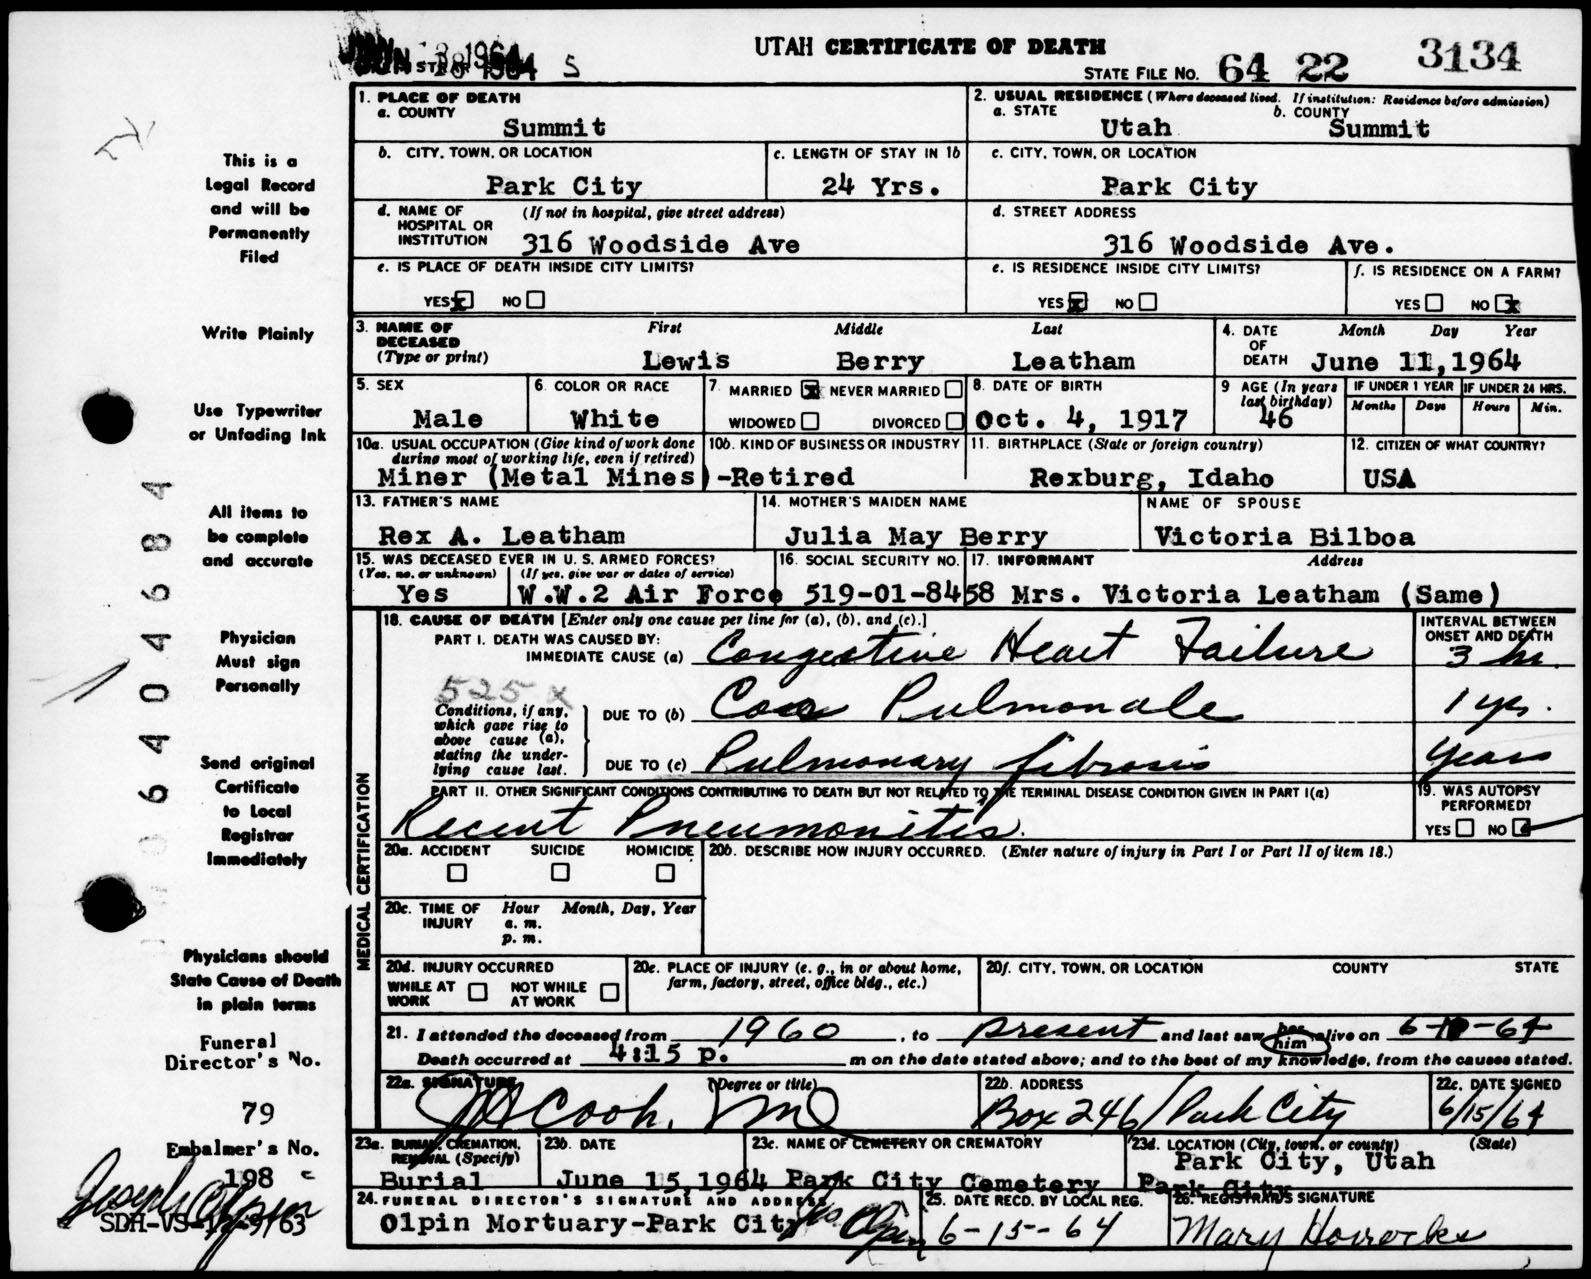 UTAH CERTIFICATE OF DEATH
JUN 18 1964 S
STATE FILE NO. 64 22 3134
1. PLACE OF DEATH
a. COUNTY
Summit
2. USUAL RESIDENCE (Where deceased lived. If institution: Residence before admission)
a. STATE b. COUNTY
Utah Summit
b. CITY, TOWN, OR LOCATION
Park City
c. LENGTH OF STAY IN 1b
24 Yrs.
c. CITY, TOWN, OR LOCATION
Park City
d. NAME OF (If not in hospital, give street address)
HOSPITAL OR
INSTITUTION 316 Woodside Ave
d. STREET ADDRESS
316 Woodside Ave.
e. IS PLACE OF DEATH INSIDE CITY LIMITS?
YES x NO
e. IS RESIDENCE INSIDE CITY LIMITS?
YES x NO
f. IS RESIDENCE ON A FARM?
YES NO x
3. NAME OF First Middle Last
DECEASED
(Type or print) Lewis Berry Leatham
4. DATE Month Day Year
OF
DEATH June 11,1964
5. SEX
Male
6. COLOR OR RACE
White
7. MARRIED x NEVER MARRIED
WIDOWED DIVORCED
8. DATE OF BIRTH
Oct. 4, 1917
9 AGE (In years
last birthday)
46
IF UNDER 1 YEAR IF UNDER 24 HRS.
Months Days Hours Min.
10a. USUAL OCCUPATION (Give kind of work done
during most of working life, even if retired)
10b. KIND OF BUSINESS OR INDUSTRY
Miner (Metal Mines)-Retired
11. BIRTHPLACE (State or foreign country)
Rexburg, Idaho
12. CITIZEN OF WHAT COUNTRY?
USA
13. FATHER'S NAME
Rex A. Leatham
14. MOTHER'S MAIDEN NAME
Julia May Berry
NAME OF SPOUSE
Victoria Bilboa
15. WAS DECEASED EVER IN U. S. ARMED FORCES?
(Yes, no, or unknown) (If yes, give war or dates of service)
Yes W.W.2 Air Force
16. SOCIAL SECURITY NO.
519-01-8458
17. INFORMANT Address
Mrs. Victoria Leatham (Same)
MEDICAL CERTIFICATION
18. CAUSE OF DEATH [Enter only one cause per line for (a), (b), and (c).]
INTERVAL BETWEEN
ONSET AND DEATH
PART I. DEATH WAS CAUSED BY:
IMMEDIATE CAUSE (a) Congestive Heart Failure 3 hr.
525 x
Conditions, if any,
which gave rise to
above cause (a),
stating the under-
lying cause last.
DUE TO (b) Cor Pulmonale 1 yr.
DUE TO (c) Pulmonary fibrosis years
PART II. OTHER SIGNIFICANT CONDITIONS CONTRIBUTING TO DEATH BUT NOT RELATED TO THE TERMINAL DISEASE CONDITION GIVEN IN PART I(a)
Recent Pneumonitis.
19. WAS AUTOPSY
PERFORMED?
YES NO
20a. ACCIDENT SUICIDE HOMICIDE
20b. DESCRIBE HOW INJURY OCCURRED. (Enter nature of injury in Part I or Part II of item 18.)
20c. TIME OF Hour Month, Day, Year
INJURY a. m.
p. m.
20d. INJURY OCCURRED
WHILE AT NOT WHILE
WORK AT WORK
20e. PLACE OF INJURY (e. g., in or about home,
farm, factory, street, office bldg., etc.)
20f. CITY, TOWN, OR LOCATION COUNTY STATE
21. I attended the deceased from 1960, to present and last saw her him alive on 6-10-64
Death occurred at 4:15 p. m on the date stated above; and to the best of my knowledge, from the causes stated.
22a. SIGNATURE (Degree or title)
Cook, MD
22b. ADDRESS
Box 246 / Park City
22c. DATE SIGNED
6/15/64
23a. BURIAL, CREMATION,
REMOVAL (Specify)
Burial
23b. DATE
June 15,1964
23c. NAME OF CEMETERY OR CREMATORY
Park City Cemetery
23d. LOCATION (City, town, or county) (State)
Park City, Utah
Park City
24. FUNERAL DIRECTOR'S SIGNATURE AND ADDRESS
Olpin Mortuary-Park City Jos Olpin
25. DATE RECD. BY LOCAL REG.
6-15-64
26. REGISTRAR'S SIGNATURE
Mary Horrocks
This is a
Legal Record
and will be
Permanently
Filed
Write Plainly
Use Typewriter
or Unfading Ink
All items to
be complete
and accurate
Physician
Must sign
Personally
Send original
Certificate
to Local
Registrar
Immediately
Physicians should
State Cause of Death
in plain terms
Funeral
Director's No.
79
Embalmer's No.
198
Joseph Olpin